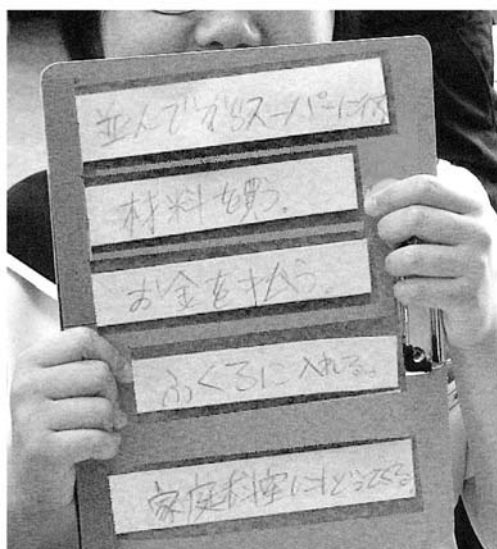 並んでからスーパーに行く
材料を買う。
お金を払う。
ふくろに入れる。
家庭科室にもどってくる